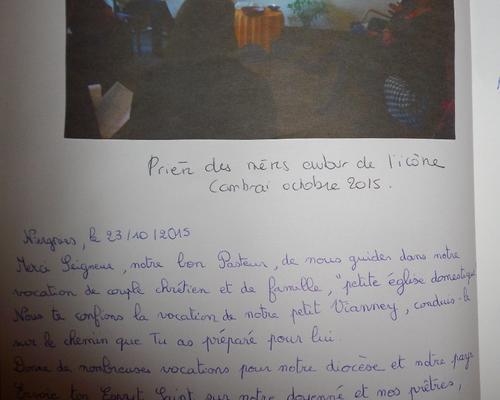 Prière des mères autour de l'icône
Cambrai octobre 2015.
Niergnies, le 23/10/2015
Merci Seigneur, notre bon Pasteur, de nous guider dans notre
vocation de couple chrétien et de famille, "petite église domestique
Nous te confions la vocation de notre petit Vianney, conduis-le
sur le chemin que Tu as préparé pour lui.
Donne de nombreuses vocations pour notre diocèse et notre pays
Envoie ton Esprit Saint sur notre doyenné et nos prêtres,